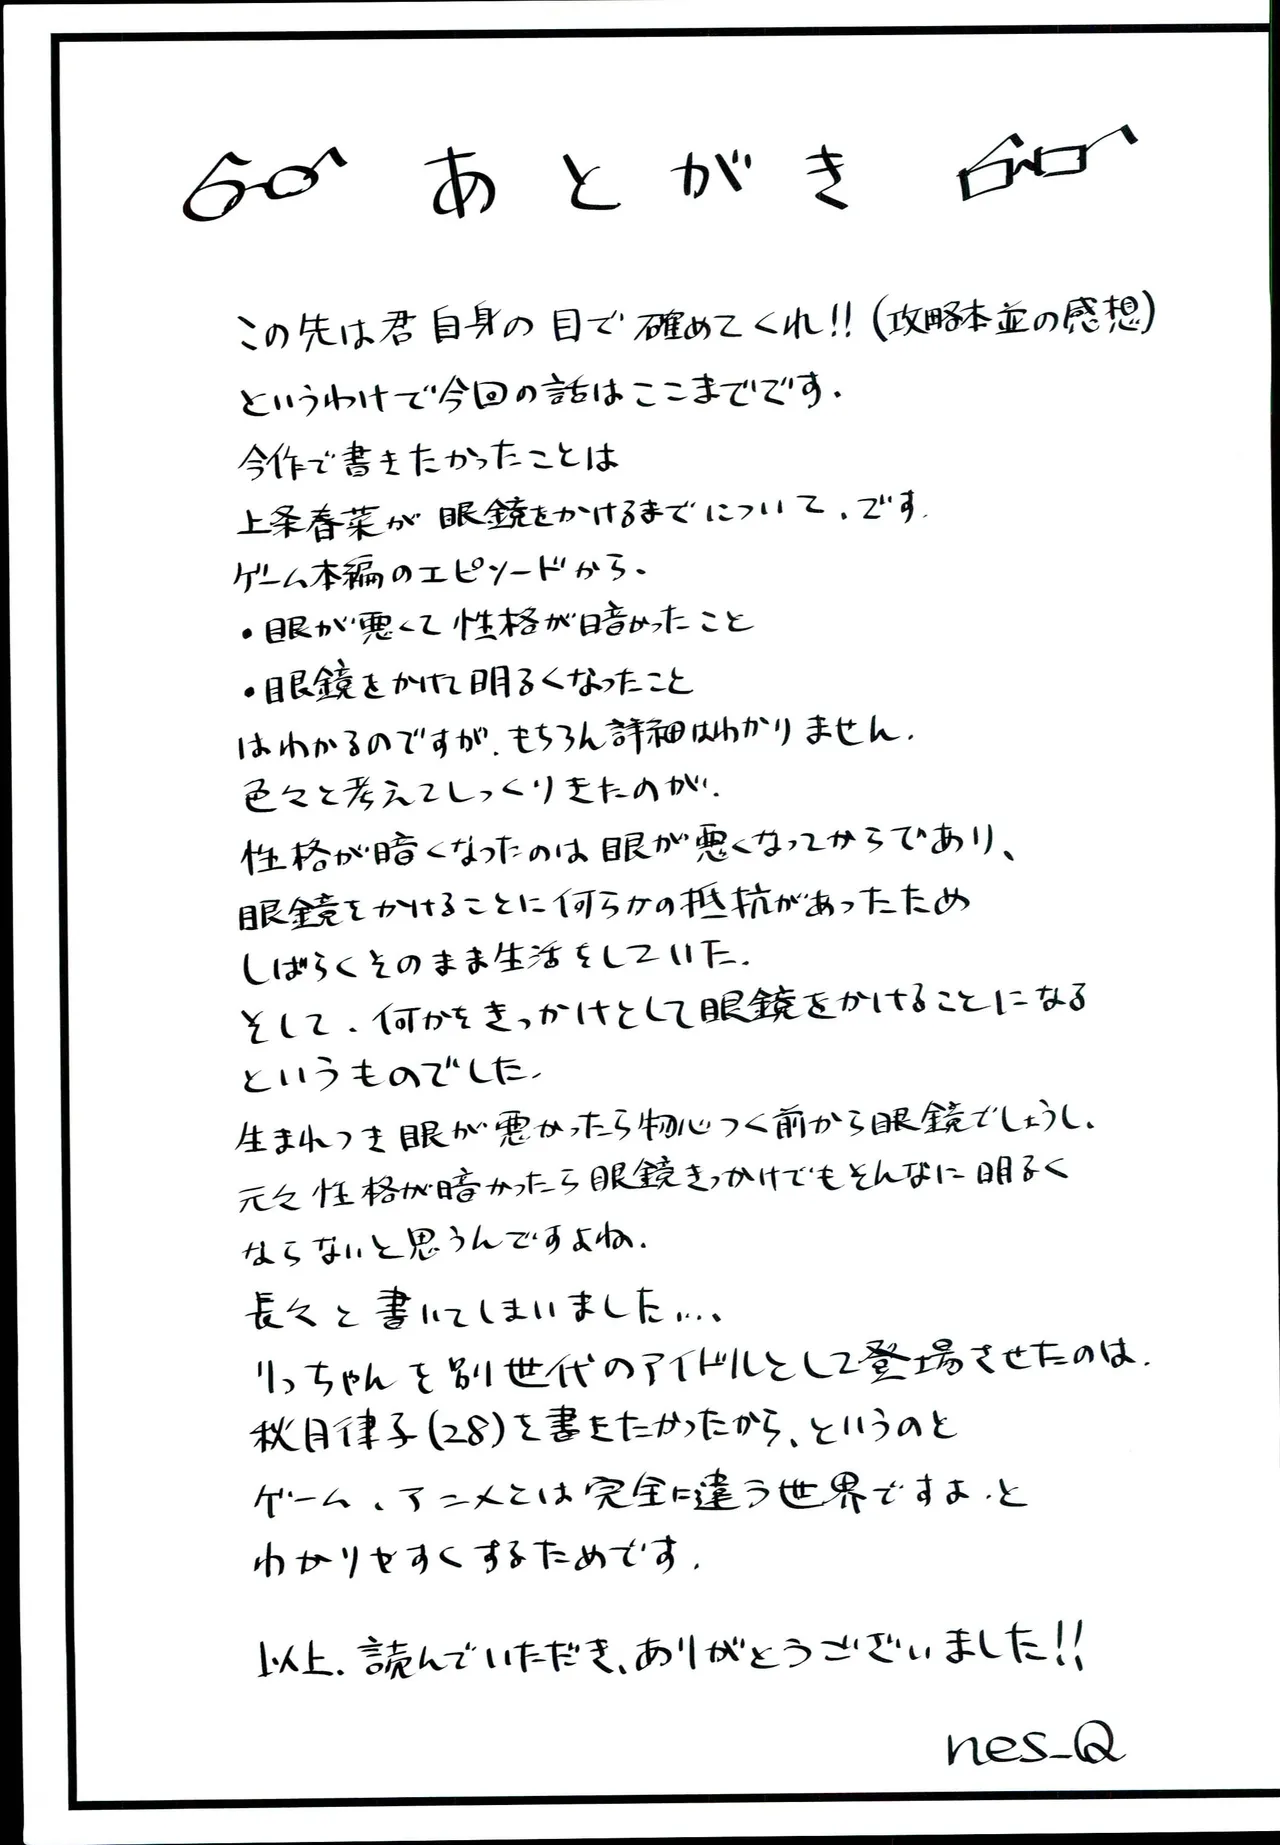 あとがき
この先は君自身の目で確めてくれ!!(攻略本並の感想)
というわけで今回の話はここまでです.
今作で書きたかったことは
上条春菜が眼鏡をかけるまでについて、です.
ゲーム本編のエピソードから、
・眼が悪くて性格が暗かったこと
・眼鏡をかけて明るくなったこと
はわかるのですが、もちろん詳細はわかりません.
色々と考えてしっくりきたのが、
性格が暗くなったのは眼が悪くなってからであり、
眼鏡をかけることに何らかの抵抗があったため
しばらくそのまま生活をしていた.
そして、何かをきっかけとして眼鏡をかけることになる
というものでした.
生まれつき眼が悪かったら物心つく前から眼鏡でしょうし、
元々性格が暗かったら眼鏡きっかけでもそんなに明るく
ならないと思うんですよね.
長々と書いてしまいました...、
りっちゃんを別世代のアイドルとして登場させたのは、
秋月律子(28)を書きたかったから、というのと
ゲーム、アニメとは完全に違う世界ですよ、と
わかりやすくするためです.
以上、読んでいただき、ありがとうございました!!
nes_Q